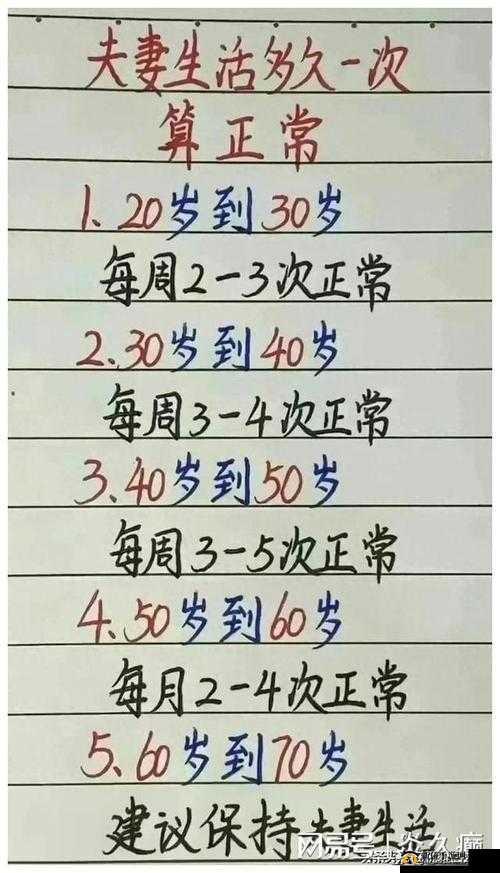 夫妻生活多久一次
算正常
1.20岁到30岁
每周2-3次正常
2.30岁到40岁
每周3-4次正常
3.40岁到50岁
每周3-5次正常
4.50岁到60岁
每月2-4次正常
5.60岁到70岁
建议保持夫妻生活
网易号